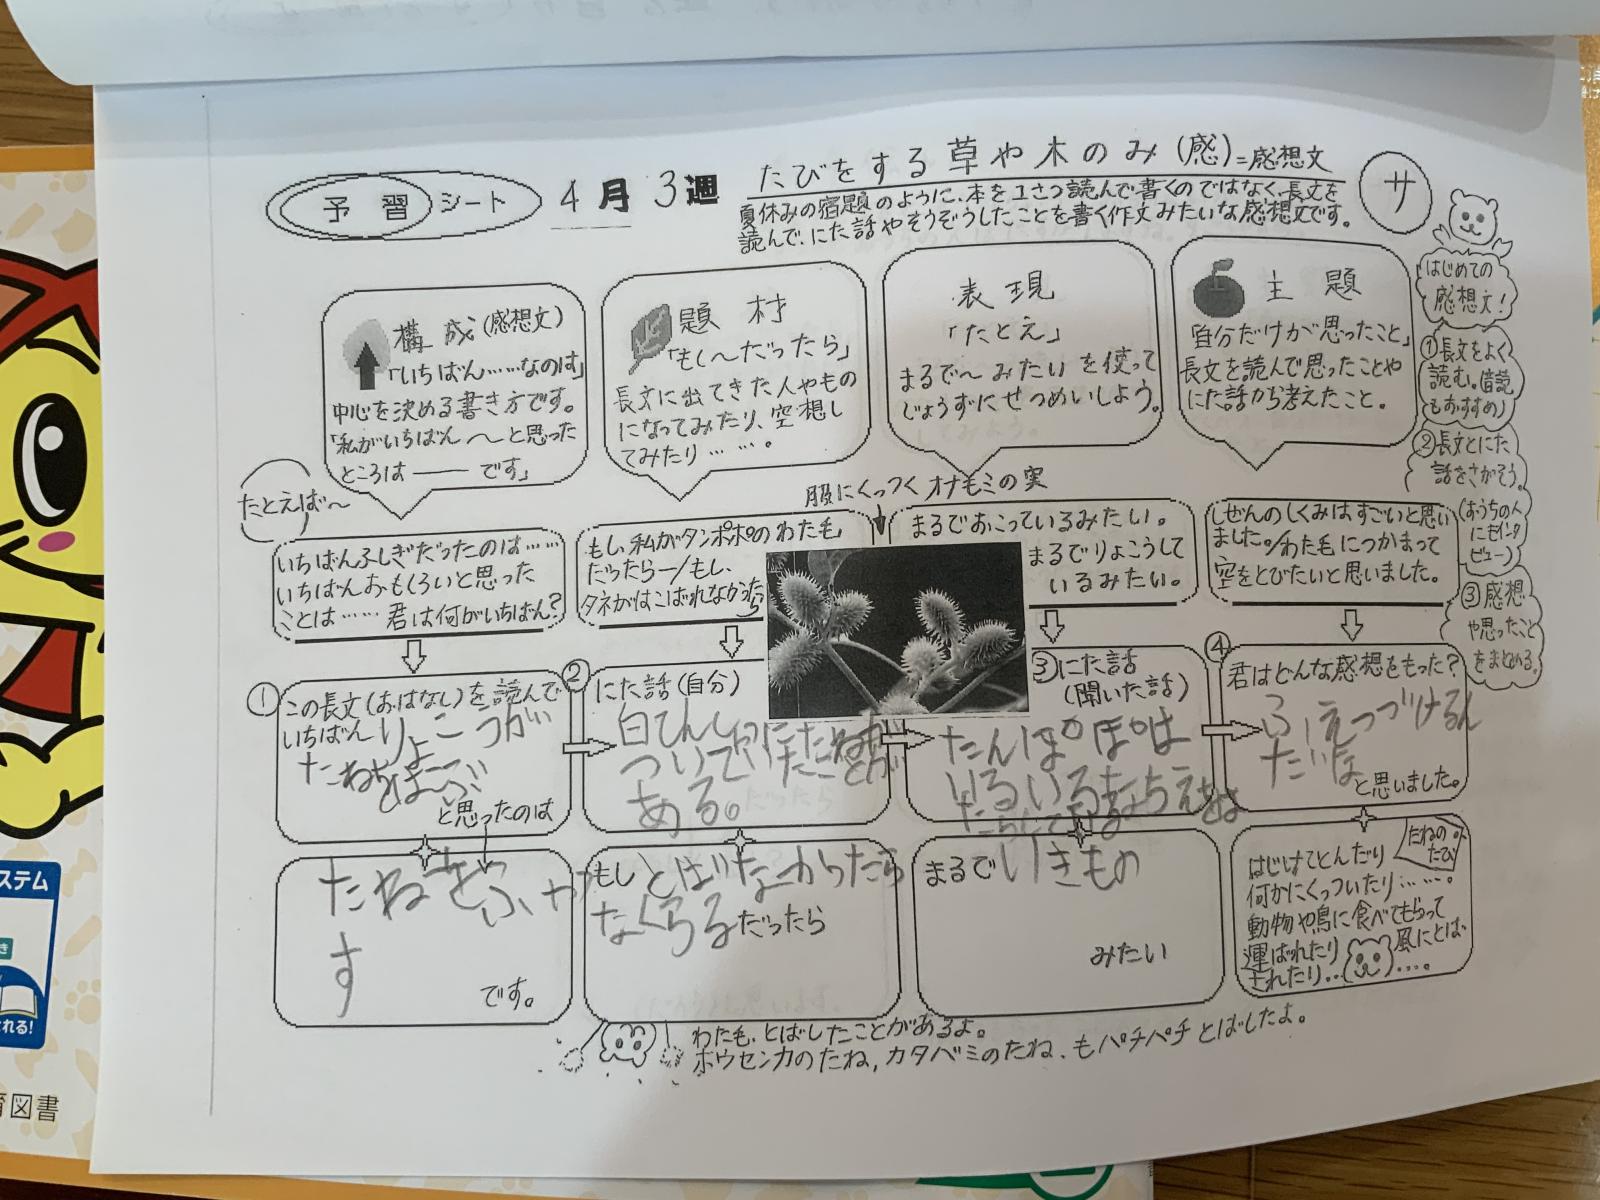 予習シート 4月3週
たびをする草や木のみ(感)=感想文
夏休みの宿題のように、本を1さつ読んで書くのではなく、長文を
読んで、にた話やそうぞうしたことを書く作文みたいな感想文です。
サ
構成(感想文)
「いちばん……なのは」
中心を決める書き方です。
「私がいちばん〜と思った
ところは── です」
題材
「もし〜だったら」
長文に出てきた人やもの
になってみたり、空想し
てみたり……。
表現
「たとえ」
まるで〜みたいを使って
じょうずにせつめいしよう。
主題
「自分だけが思ったこと」
長文を読んで思ったことや
にた話から考えたこと。
はじめての
感想文!
①長文をよく
読む。(音読
もおすすめ)
②長文とにた
話をさがそう。
(おうちの人
にもインタ
ビュー)
③感想
や思ったこと
をまとめる。
たとえば〜
いちばんふしぎだったのは……
いちばんおもしろいと思った
ことは…… 君は何がいちばん?
もし、私がタンポポのわた毛
だったら―/もし、
タネがはこばれなかったら
服にくっつくオナモミの実
まるでおこっているみたい。
まるでりょこうして
いるみたい。
しぜんのしくみはすごいと思い
ました。/わた毛につかまって
空をとびたいと思いました。
①この長文(おはなし)を読んで
いちばん りょこうが
たねをはこぶ
と思ったのは
たねをふやす
です。
②にた話(自分)
ついて
ある。
もしとばなかったら
なくなるだったら
③にた話
(聞いた話)
たんぽぽは
まるでいきもの
みたい
④君はどんな感想をもった?
ふえつづけるん
だなと思いました。
たねの
たび
はじけてとんだり
何かにくっついたり……。
動物や鳥に食べてもらって
運ばれたり 風にとば
されたり……。
わた毛、とばしたことがあるよ。
ホウセンカのたね、カタバミのたね、もパチパチとばしたよ。
ステム
き
れる!
育図書